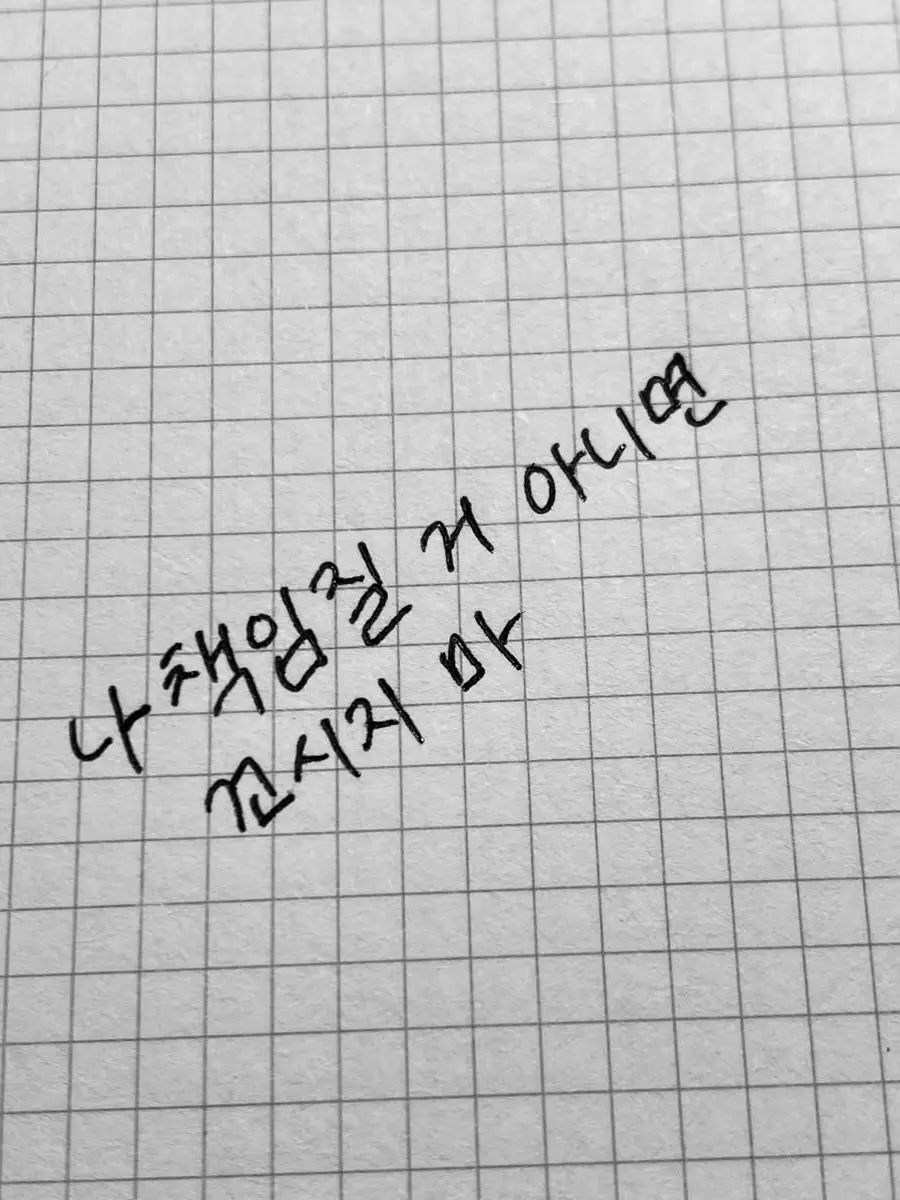 나 책임질 거 아니면
꼬시지 마